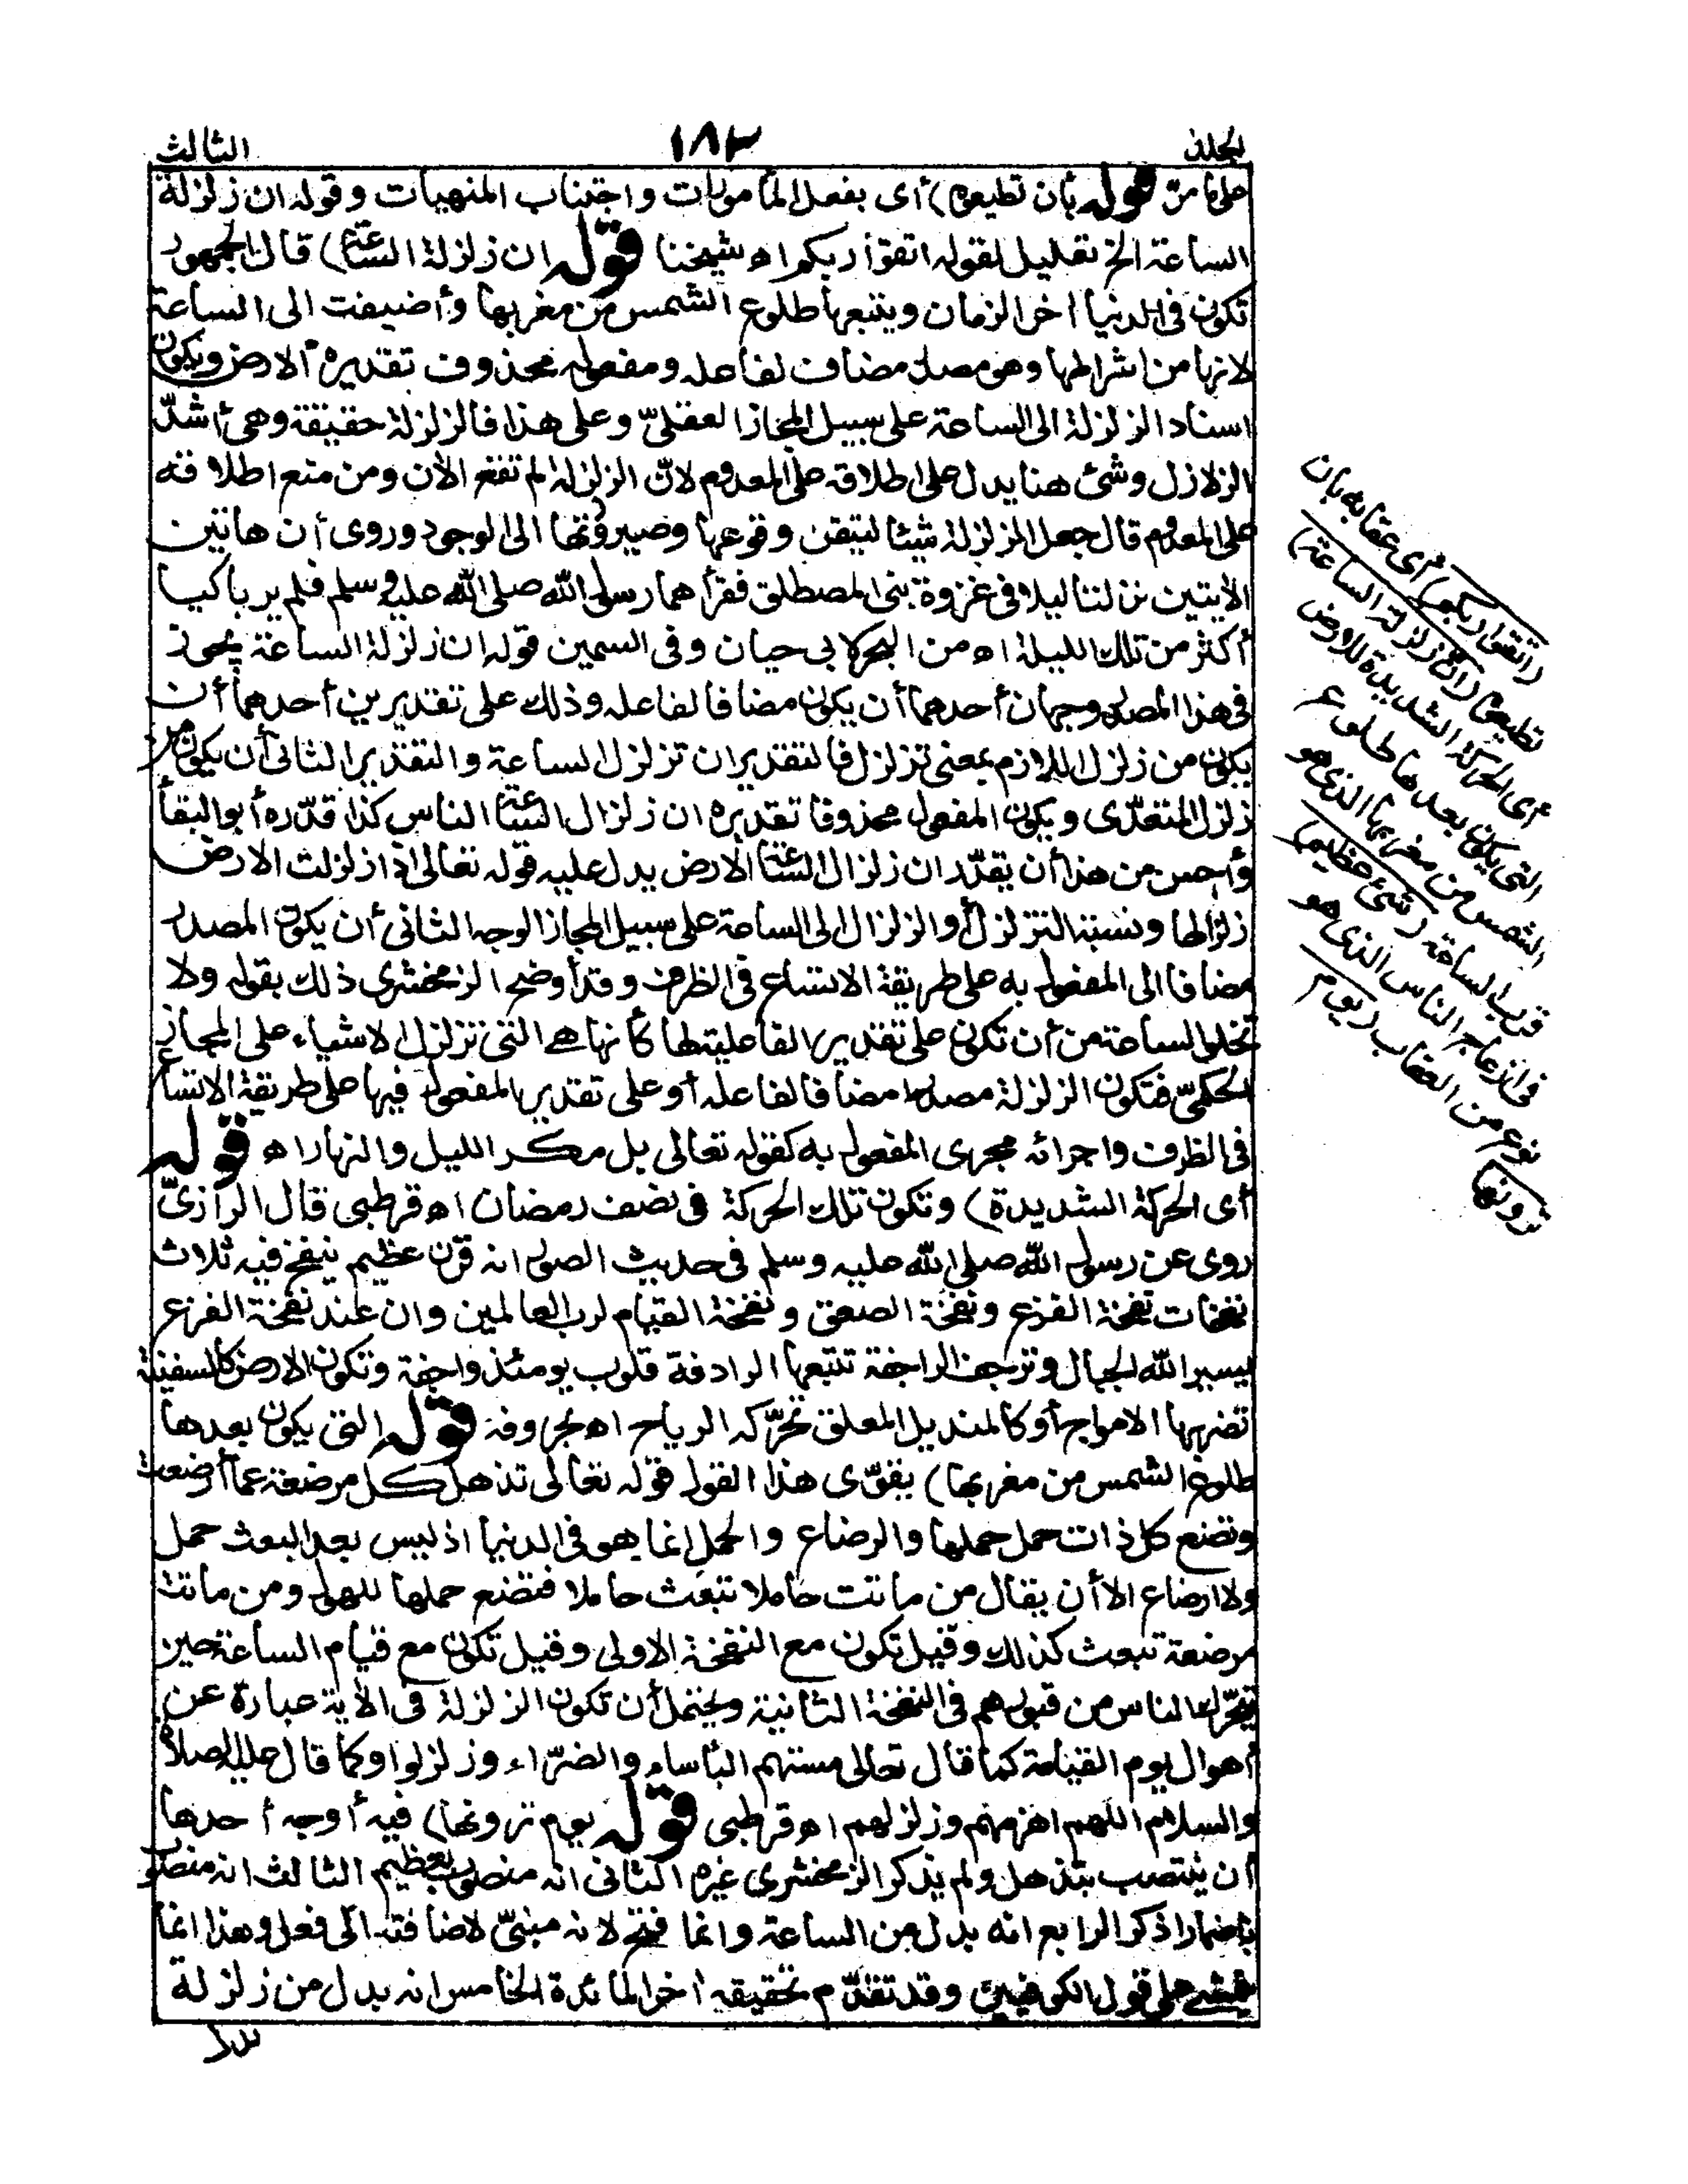 الجلد ١٨٣ الثالث
على ما مرّ قوله بأن تطيعوه) أى بفعل المأمورات واجتناب المنهيات وقوله ان زلزلة
الساعة الخ تعليل لقوله اتقوا ربكم اه شيخنا قوله ان زلزلة الساعة) قال الجمهور
تكون فى الدنيا اخر الزمان ويتبعها طلوع الشمس من مغربها وأضيفت الى الساعة
لانها من اشراطها وهى مصدر مضاف لفاعله ومفعوله محذوف تقديره الارض ويكون
اسناد الزلزلة الى الساعة على سبيل المجاز العقلىّ وعلى هذا فالزلزلة حقيقة وهى أشدّ
الزلازل وشئ هنا يدل على اطلاقه على المعدوم لانّ الزلزلة لم تقع الأن ومن منع اطلاقه
على المعدوم قال جعل الزلزلة شيئا لتيقن وقوعها وصيرورتها الى الوجود وروى أن هاتين
الأيتين نزلتا ليلا فى غزوة بنى المصطلق فقرأهما رسول الله صلى الله عليه وسلم فلم ير باكيا
أكثر من تلك الليلة اه من البحر لابى حيان وفى السمين قوله ان زلزلة الساعة يجوز
فى هذا المصدر وجهان أحدهما أن يكون مضافا لفاعله وذلك على تقديرين أحدهما أن
يكون من زلزل اللازم بمعنى تزلزل فالتقدير ان تزلزل الساعة والتقدير الثانى أن يكون من
زلزل المتعدّى ويكون المفعول محذوفا تقديره ان زلزال الساعة الناس كذا قدّره أبو البقأ
وأحسن من هذا أن يقدّر ان زلزال الساعة الأرض يدل عليه قوله تعالى اذا زلزلت الارض
زلزالها ونسبة التزلزل أو الزلزال الى الساعة على سبيل المجاز الوجه الثانى أن يكون المصدر
مضافا الى المفعول به على طريقة الاتساع فى الظرف وقد أوضح الزمخشرى ذلك بقوله ولا
تخلو الساعة من أن تكون على تقدير الفاعلية لها كأنها هى التى تزلزل الاشياء على المجاز
الحكمىّ فتكون الزلزلة مصدرا مضافا لفاعله أو على تقدير المفعول فيها على طريقة الاتساع
فى الظرف واجرائه مجرى المفعول به كقوله تعالى بل مكر الليل والنهار اه قوله
أى الحركة الشديدة) وتكون تلك الحركة فى نصف رمضان اه قرطبى قال الرازىّ
روى عن رسول الله صلى الله عليه وسلم فى حديث الصور انه قرن عظيم ينفخ فيه ثلاث
نفخات نفخة الفزع ونفخة الصعق ونفخة القيام لرب العالمين وان عند نفخة الفزع
يسير الله الجبال وترجف الراجفة تتبعها الرادفة قلوب يومئذ واجفة وتكون الارض كالسفينة
تضربها الامواج أو كالمنديل المعلق تحرّكه الرياح اه بحروفه قوله التى يكون بعدها
طلوع الشمس من مغربها) يقوّى هذا القول قوله تعالى تذهل كل مرضعة عما أرضعت
وتضع كل ذات حمل حملها والرضاع والحمل انما هو فى الدنيا اذ ليس بعد البعث حمل
ولا ارضاع الا أن يقال من ماتت حاملا تبعث حاملا فتضع حملها للهول ومن ماتت
مرضعة تبعث كذلك وقيل تكون مع النفخة الاولى وقيل تكون مع قيام الساعة حين
يتحرّك الناس من قبورهم فى النفخة الثانية ويحتمل أن تكون الزلزلة فى الأية عبارة عن
أهوال يوم القيامة كما قال تعالى مستهم البأساء والضرّاء وزلزلوا وكما قال عليه الصلاة
والسلام اللهم اهزمهم وزلزلهم اه قرطبى قوله يوم ترونها) فيه أوجه أحدها
أن ينتصب بتذهل ولم يذكر الزمخشرى غيره الثانى انه منصوب بعظيم الثالث انه منصوب
باضمار اذكر الرابع انه بدل من الساعة وانما فتح لانه مبنىّ لاضافته الى فعل وهذا انما
يتمشى على قول الكوفيين وقد تقدّم تحقيقه اخر المائدة الخامس انه بدل من زلزلة
(اتقوا ربكم) أى عقابه بأن
تطيعوه (ان زلزلة الساعة)
أى الحركة الشديدة للارض
التى يكون بعدها طلوع
الشمس من مغربها الذى هو
قرب الساعة (شئ عظيم)
فى ازعاج الناس الذى هو
نوع من العقاب (يوم
ترونها)